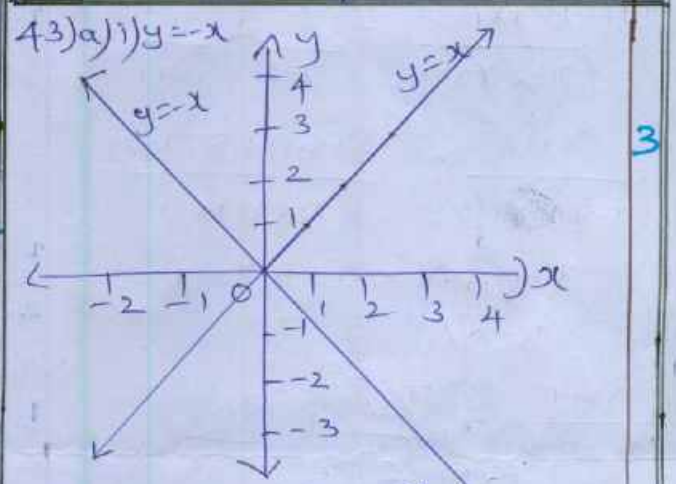 43)a)i)y=-x
y
y=x
y=-x
4
3
2
1
-2 -1 0 1 2 3 4 x
-1
-2
-3
3